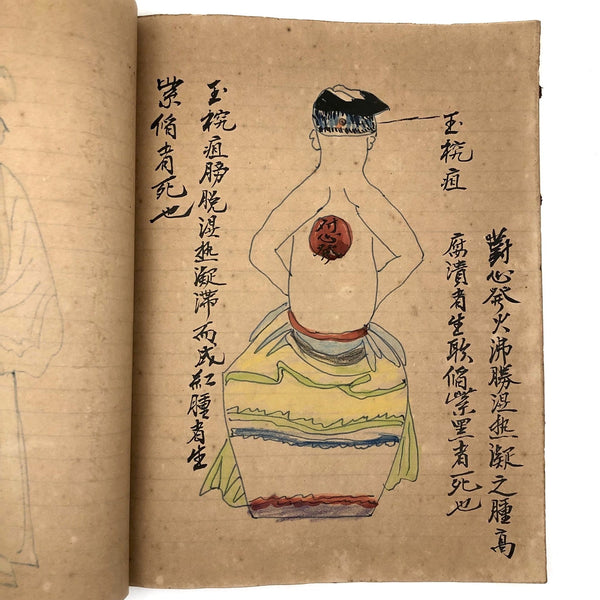 對心發火沸勝湿热凝之腫高
腐潰者生軟陷紫黑者死也
玉枕疽
对心發
玉枕疽膀胱湿热凝滯而成紅腫者生
紫陷者死也